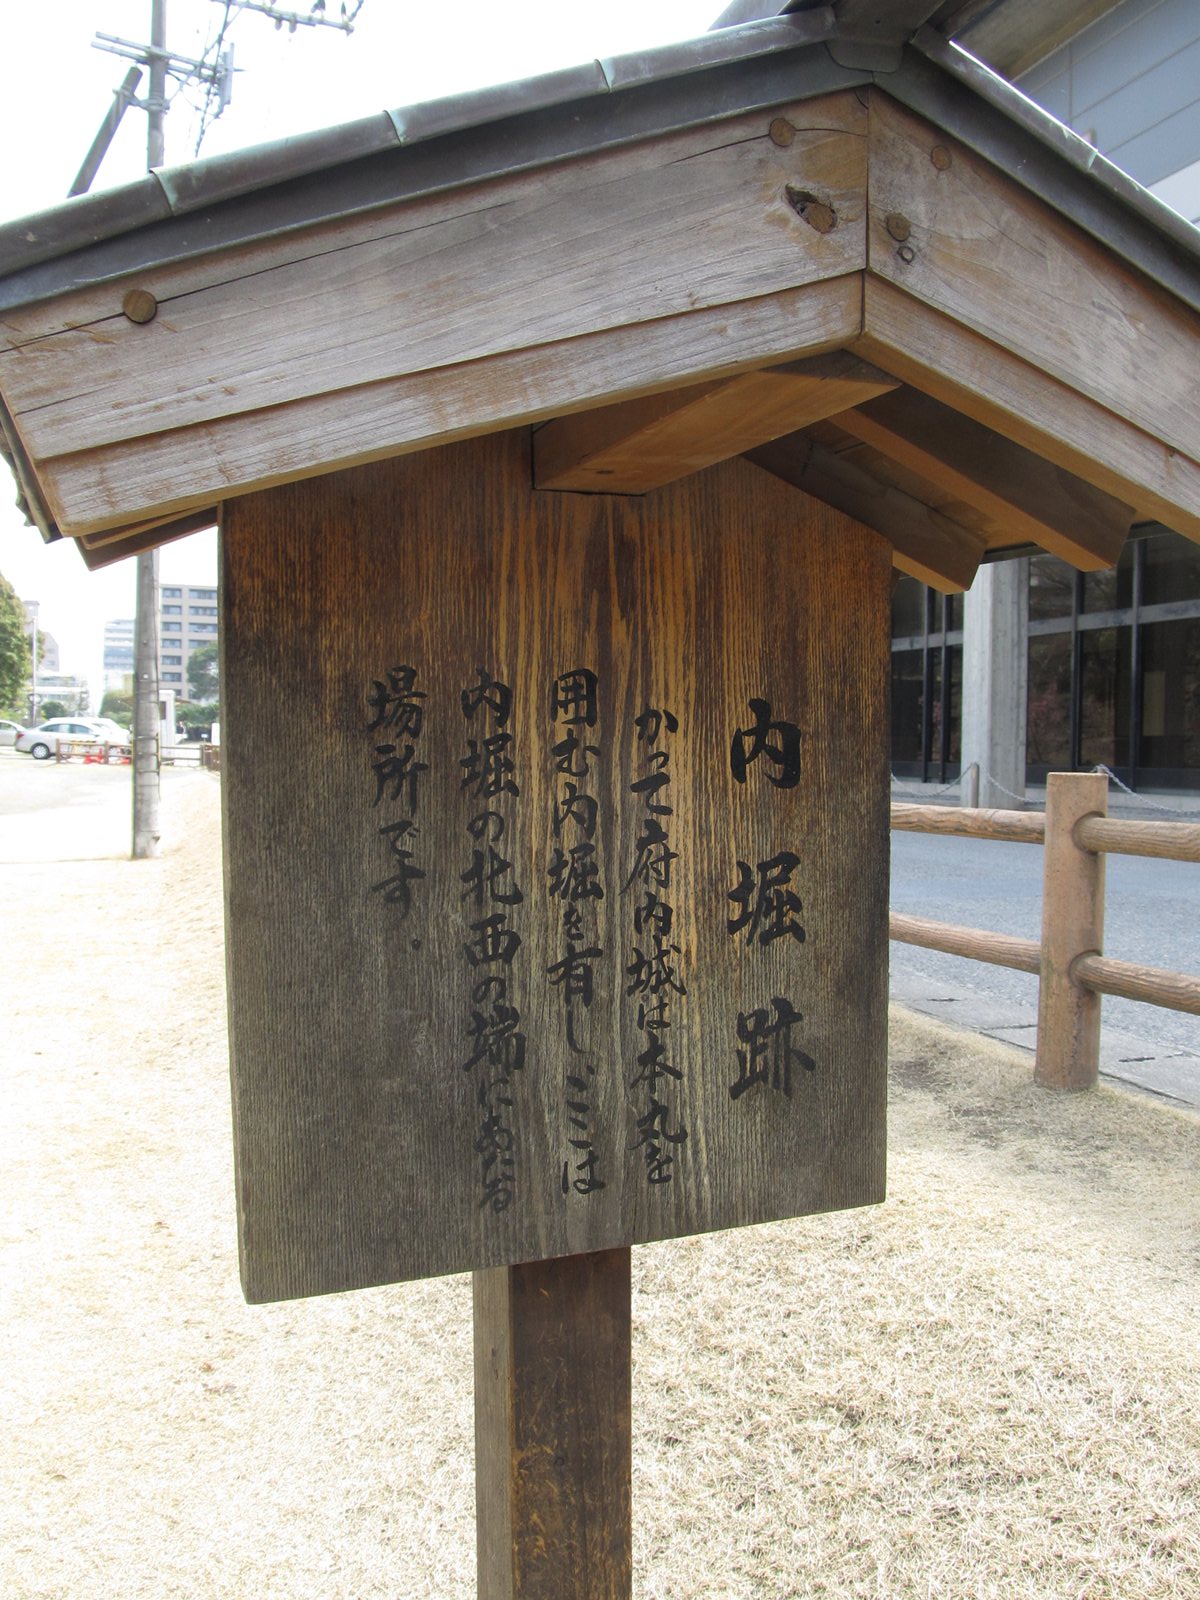 内堀跡
かつて府内城は本丸を
囲む内堀を有し、ここは
内堀の北西の端にあたる
場所です。